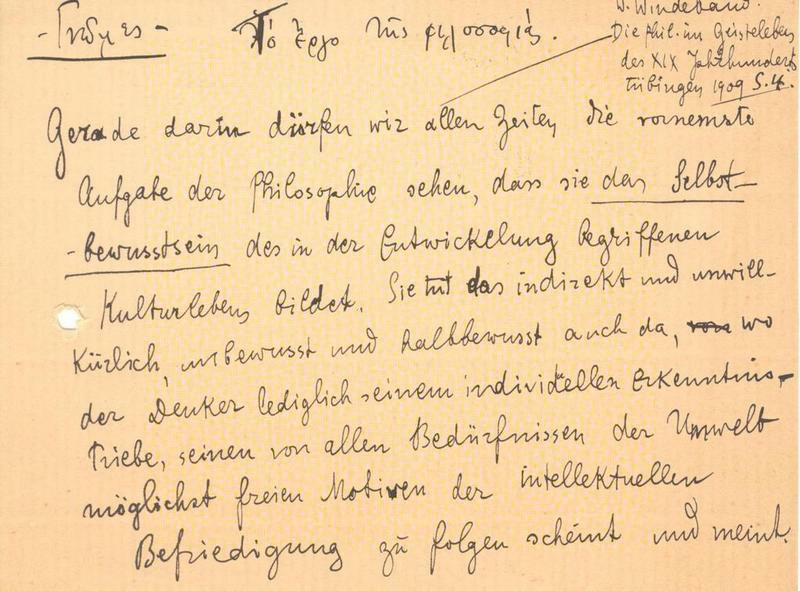 - Γνῶμες -
Τό ἔργο τῆς φιλοσοφίας.
W. Windelband.
Die Phil. im Geistesleben
des XIX Jahrhunderts
Tübingen 1909 S. 4.
Gerade darin dürfen wir allen Zeiten die vornemste
Aufgabe der Philosophie sehen, dass sie das Selbst-
-bewusstsein des in der Entwickelung begriffenen
Kulturlebens bildet. Sie tut das indirekt und unwill-
kürlich, unbewusst und halbbewusst auch da, wo
der Denker lediglich seinem individuellen Erkenntnis-
triebe, seinen von allen Bedürfnissen der Umwelt
möglichst freien Motiven der intellektuellen
Befriedigung zu folgen scheint und meint.